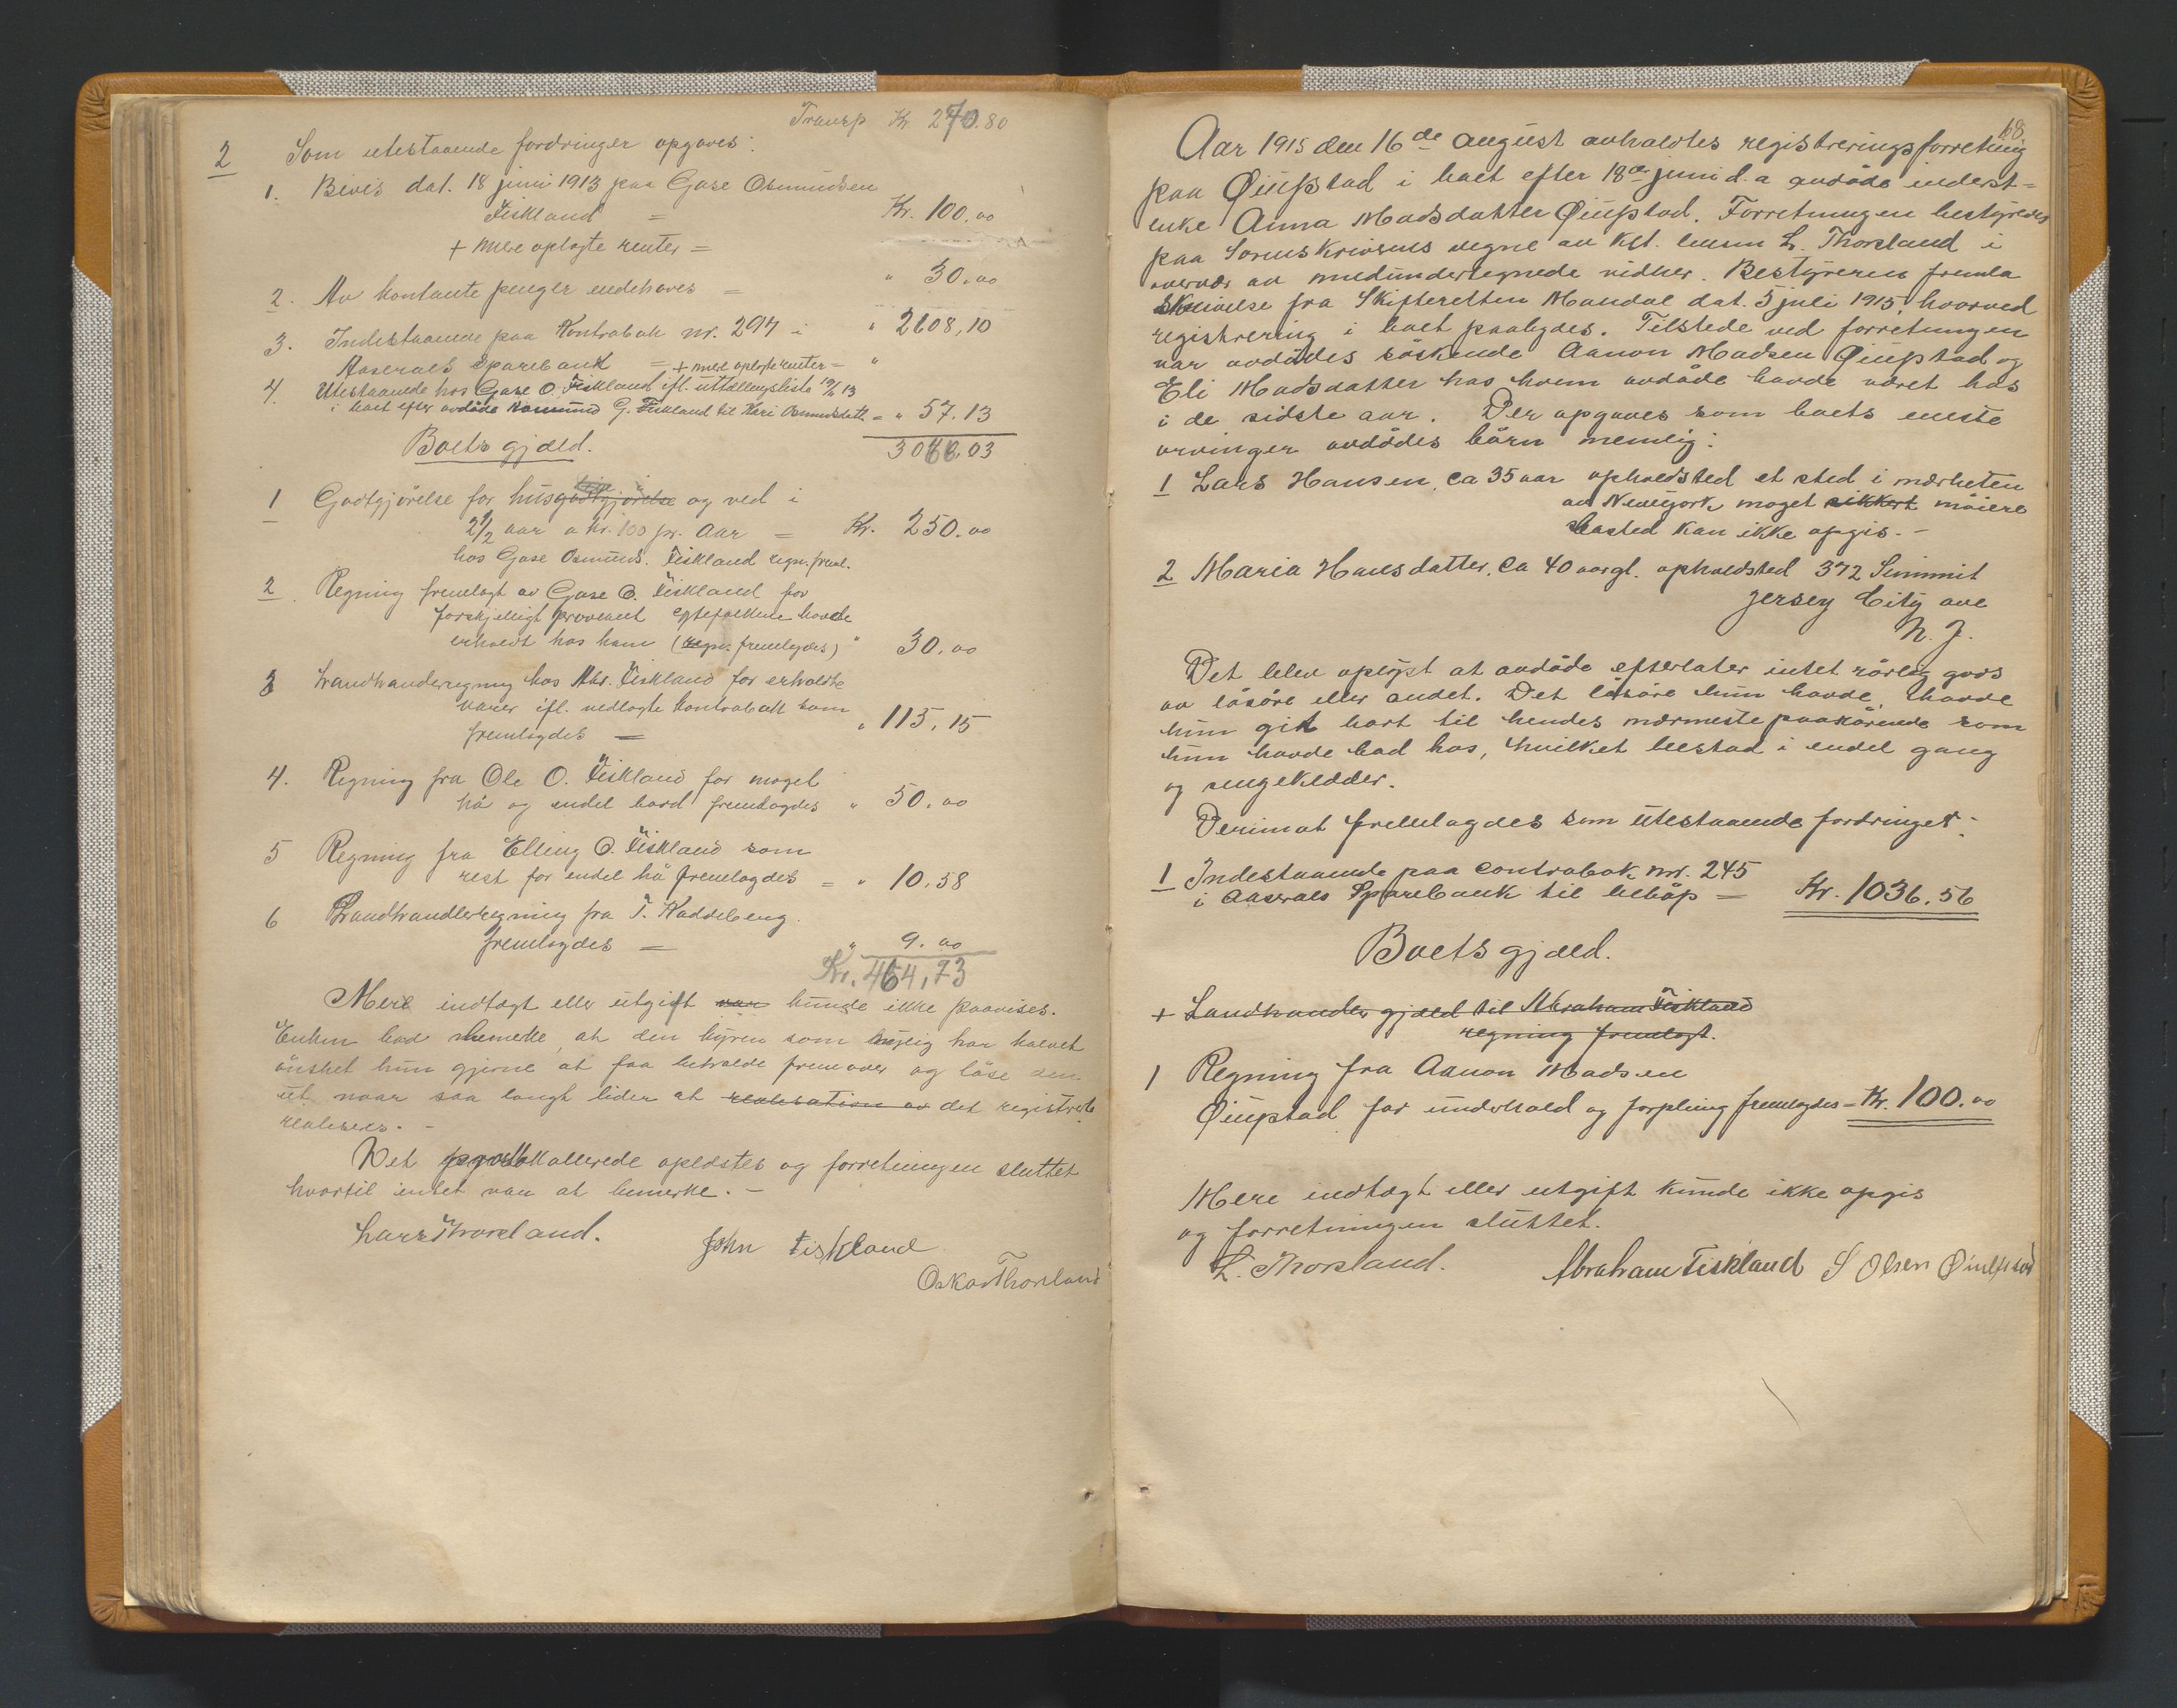 Transp Kr 270.80
2 Som utestaaende fordringer opgaves:
1. Bevis dat. 18 juni 1913 paa Gase Osmundsen
Fiskland = Kr. 100.00
+ mere oplagte renter =
2. Av kontante penger endehaves = " 30.00
3. Indestaaende paa Kontrabok nr. 297 i " 2608,10
Aaserals Sparebank = + mere oplagte renter = "
4. Utestaaende hos Gase O. Fiskland ifl. utlodningsliste 12/6 13
i boet efter avdöde Aasmund G. Fiskland til Kari Osmundsdatt. = " 57.13
3066,03
Boets gjæld.
1 Godtgjörelse for husgodtgjörelse leie og ved i
2 1/2 aar a kr. 100 pr. aar = Kr. 250.00
hos Gase Osmunds. Fiskland regn. freml.
2 Regning fremlagt av Gase O. Fiskland for
forskjelligt provenet egtefolkene havde
erholdt hos ham (regn. fremlagdes) " 30.00
3 Landhandlerregning hos Abr. Fiskland for erholdte
varer ifl. vedlagte kontrabok som
fremlagdes = " 115,15
4. Regning fra Ole O. Fiskland for noget
hö og endel bord fremlagdes " 50.00
5 Regning fra Elling O. Fiskland som
rest for endel hö fremlagdes = " 10.58
6 Landhandlerregning fra T. Kaddeberg.
fremlagdes = " 9.00
Kr. 464,73
Mere indtægt eller utgift var kunde ikke paavises.
Enken bad bemerke, at den kyren som nylig har kalvet
önsket hun gjerne at faa beholde fremover og löse den
ut naar saa langt lider at realisation av det registrerte
realiseres. -
Det protokollerede oplæstes og forretningen sluttet
hvortil intet var at bemerke. -
Lars Thorsland.
John Fiskland
Oskar Thorsland
68
Aar 1915 den 16de august avholdtes registreringsforretning
paa Øiufstad i boet efter 18de juni d.a avdöde inderst-
enke Anna Madsdatter Øiufstad. Forretningen bestyredes
paa Sorenskriverens vegne av kst. lensm L. Thorsland i
overvær av medundertegnede vidner. Bestyreren fremla
skrivelse fra Skifteretten Mandal dat. 5 juli 1915, hvorved
registrering i boet paalydes. Tilstede ved forretningen
var avdödes söskende Aanon Madsen Øiufstad og
Eli Madsdatter hos hvem avdöde havde været hos
i de sidste aar. Der opgaves som boets eneste
arvinger avdödes börn nemlig:
1 Lars Hansen, ca 35 aar opholdsted et sted i nærheten
av Newyork noget sikkert nöiere
bosted kan ikke opgis. -
2 Maria Hansdatter, ca 40 aar gl. opholdsted 372 Summit
Jersey City ave
N. J.
Det blev oplyst at avdöde efterlater intet rörlig gods
av lösöre eller andet. Det lösöre hun havde, havde
hun git bort til hendes nærmeste paarörende som
hun havde bod hos, hvilket bestod i endel gang
og sengeklæder.
Derimot fremlagdes som utestaaende fordringer:
1 Indestaaende paa contrabok nr. 245
i Aaserals Sparebank til belöp = Kr. 1036.56
Boets gjæld.
+ Landhandler gjæld til Abraham Fiskland
regning fremlagt.
1 Regning fra Aanon Madsen
Øiufstad for underhold og forpleing fremlagdes = Kr. 100.00
Mere indtægt eller utgift kunde ikke opgis
og forretningen sluttet.
L. Thorsland.
Abraham Fiskland
S Olsen Øiufstad